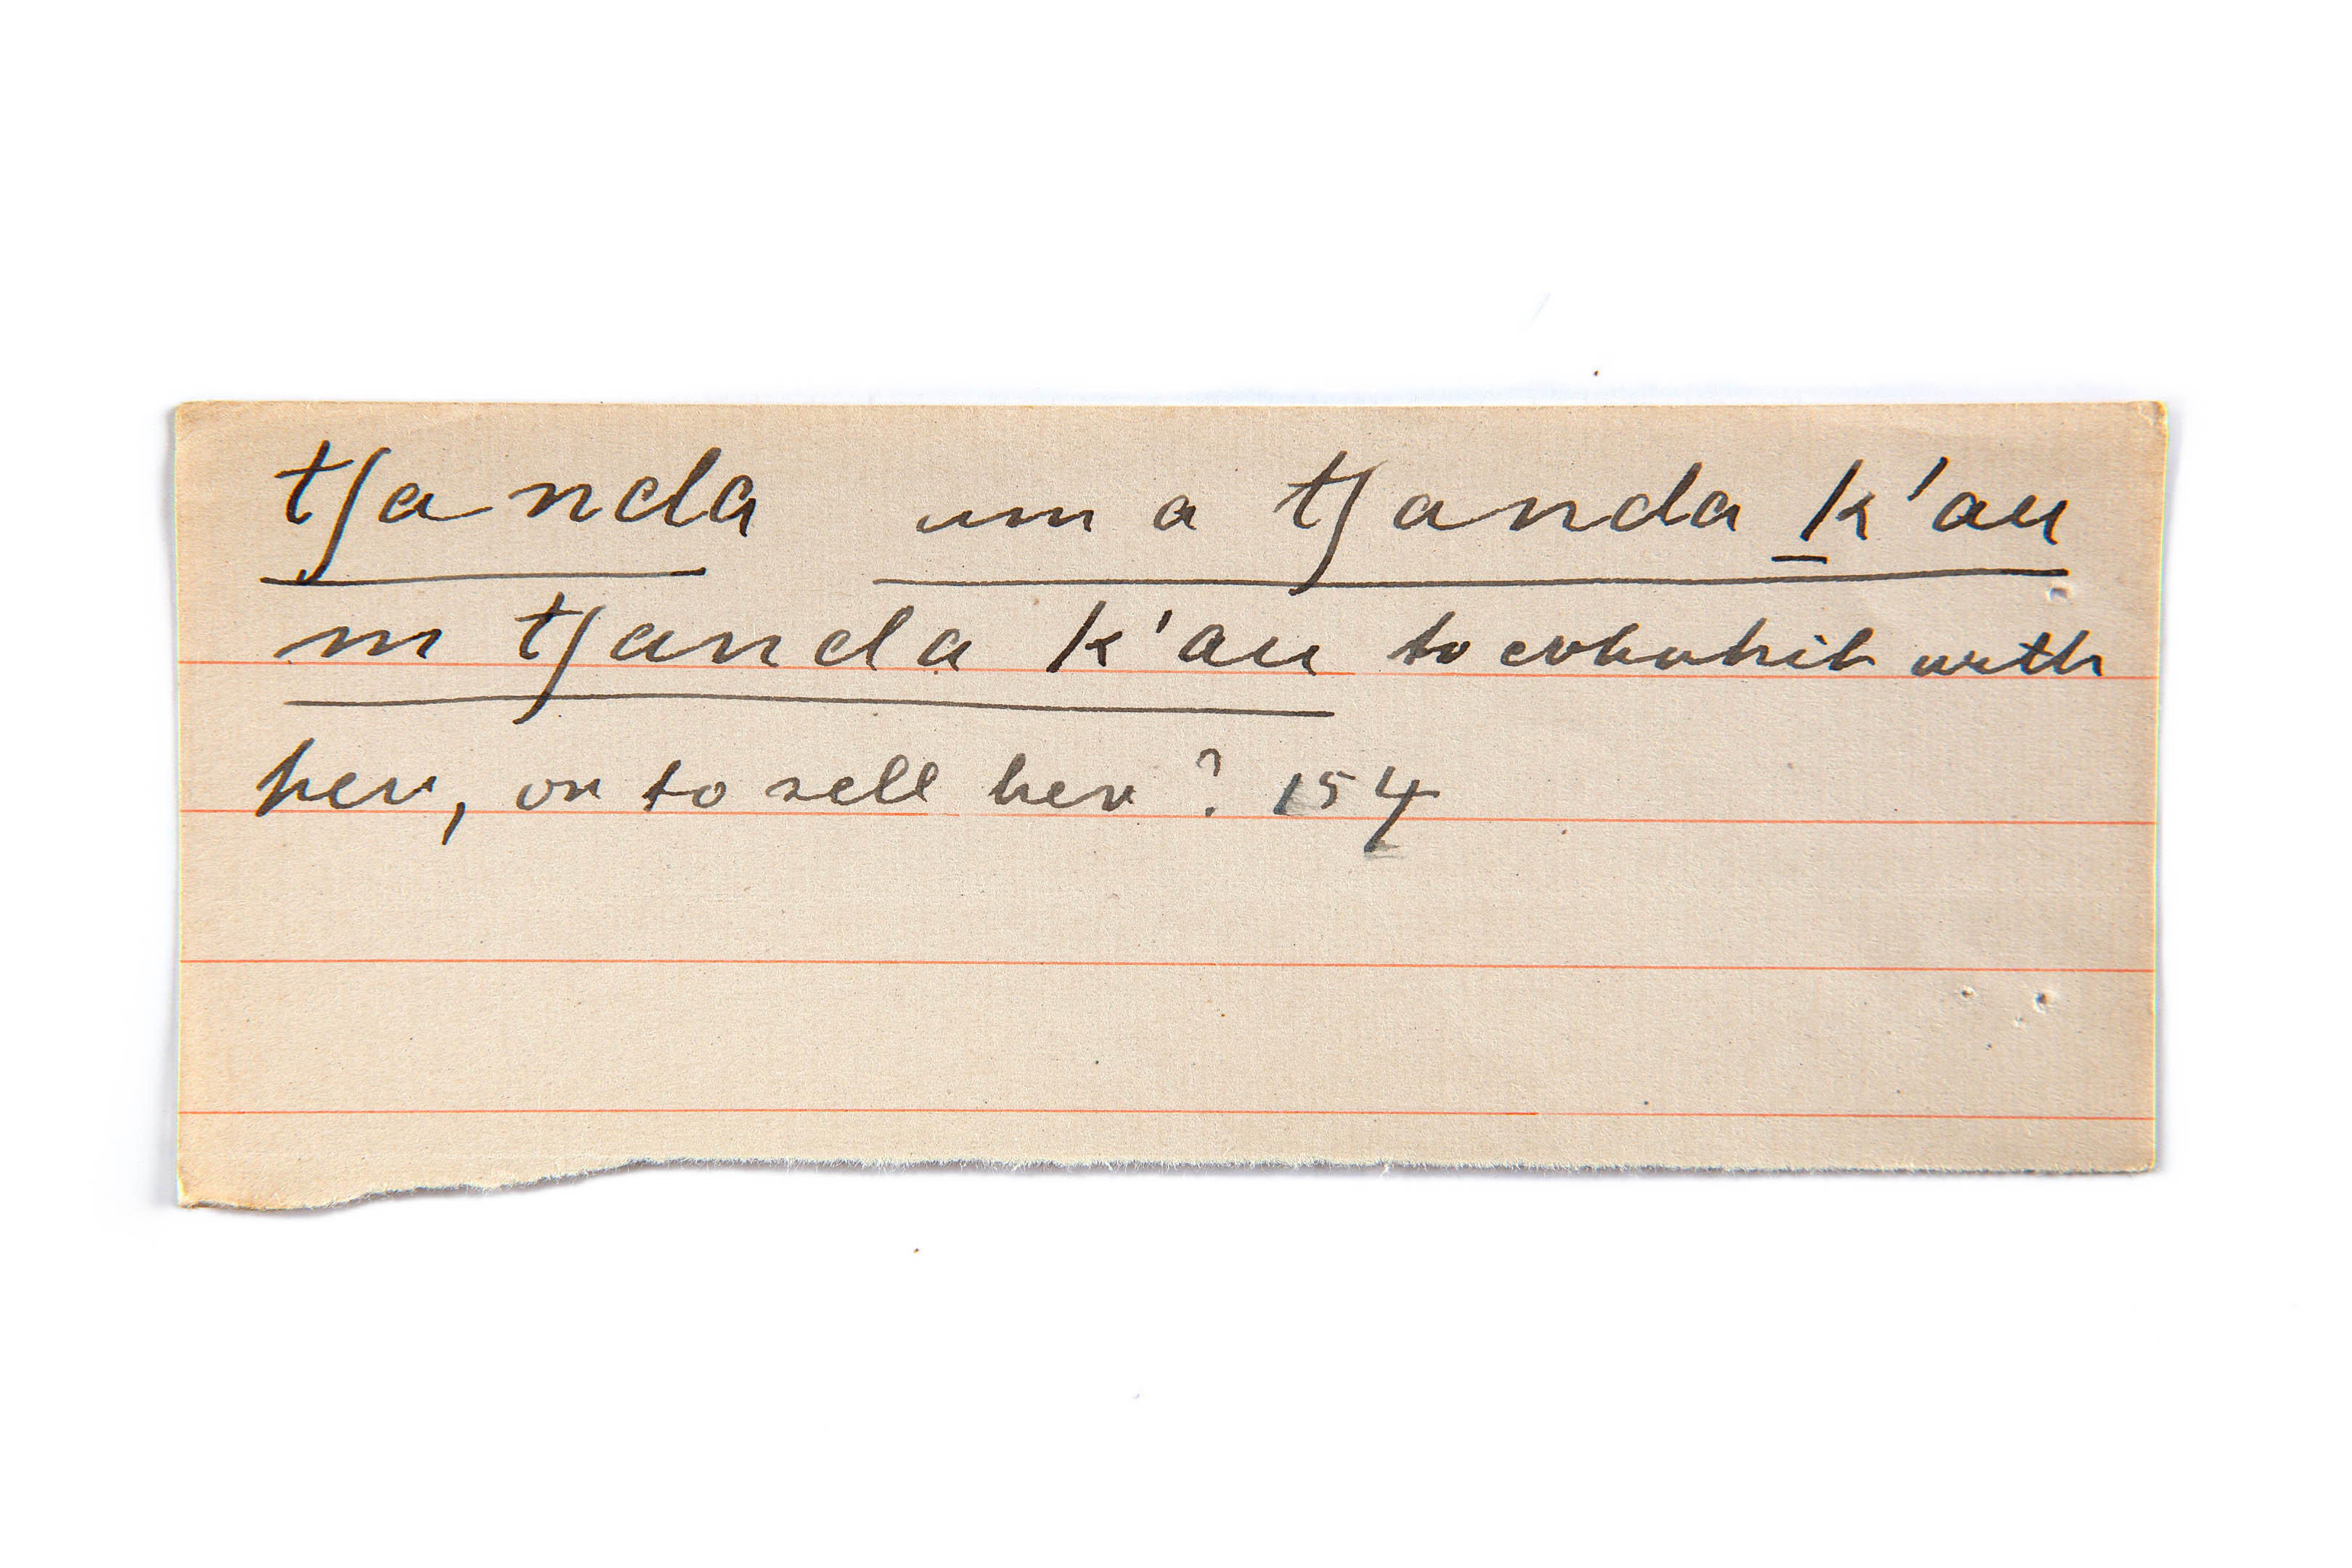 tʃanda um a tʃanda k'au
m tʃanda k'au to cohabit with
her, or to sell her? 154